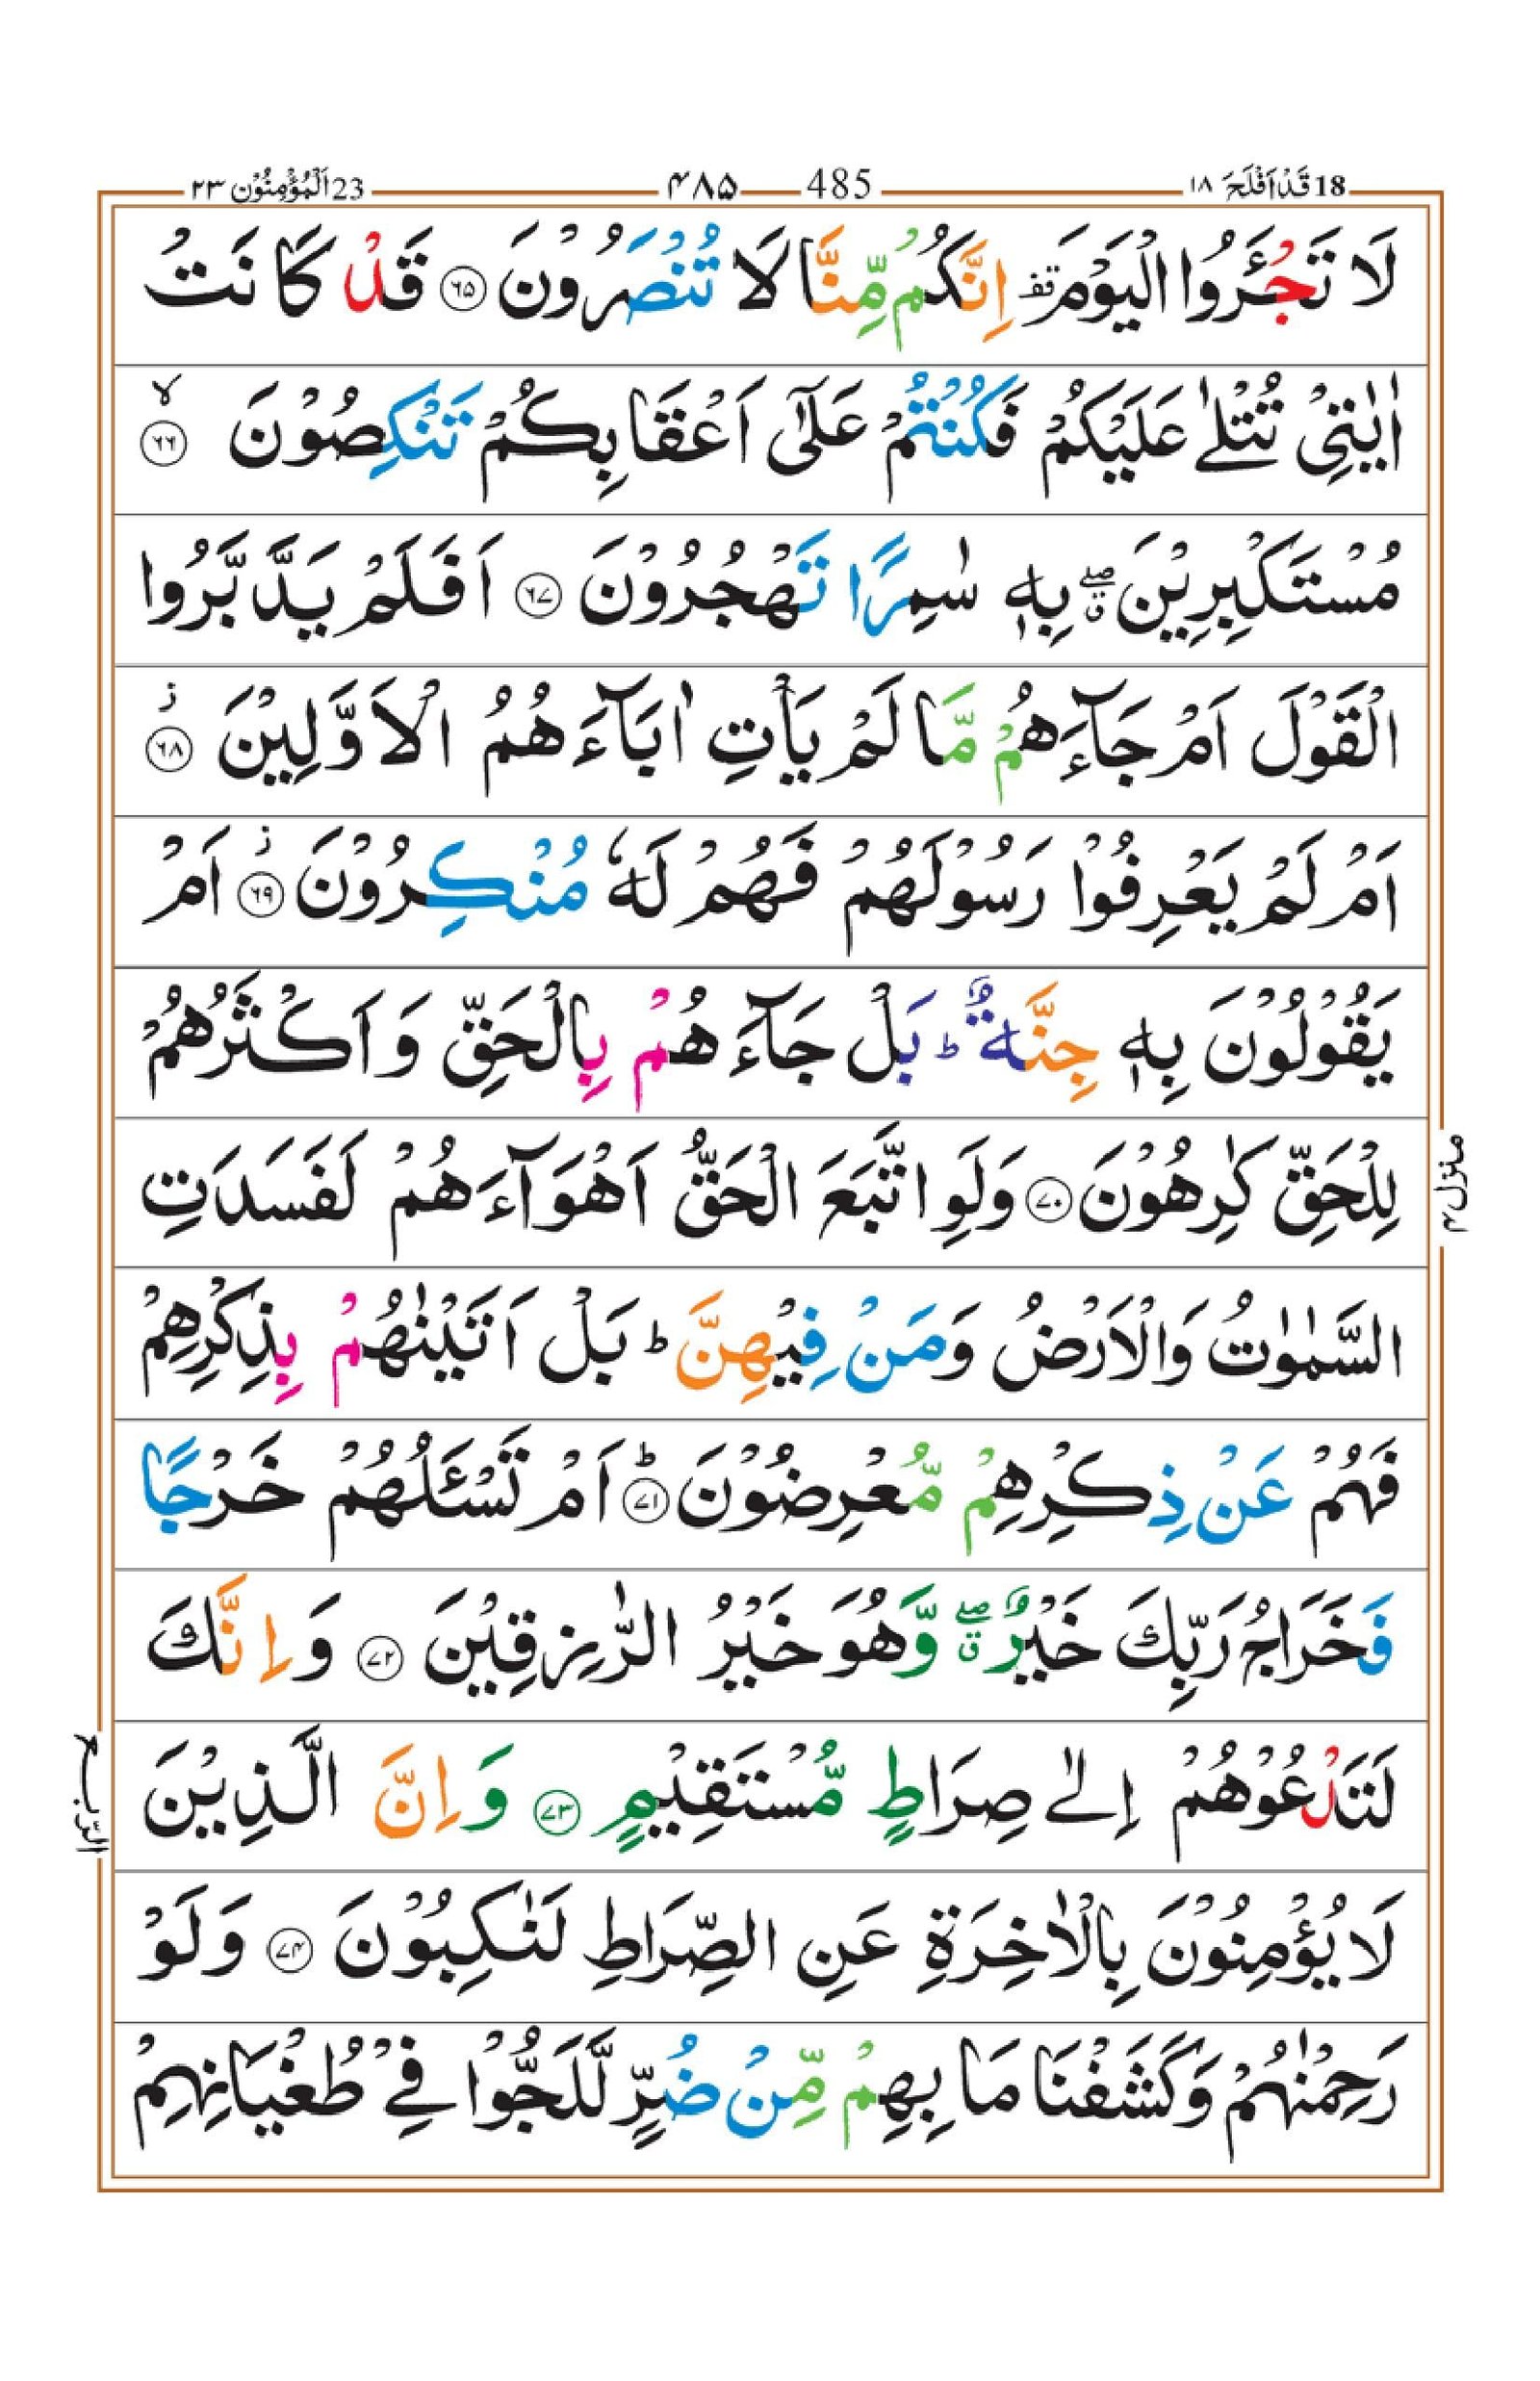 18 قَدْ اَفْلَحَ ١٨ 485 ۴۸۵ 23 اَلْمُؤْمِنُوْن ٢٣
لَا تَجْـَٔرُوا الْيَوْمَ قف اِنَّكُمْ مِّنَّا لَا تُنْصَرُوْنَ ۝٦٥ قَدْ كَانَتْ
اٰيٰتِيْ تُتْلٰى عَلَيْكُمْ فَكُنْتُمْ عَلٰٓى اَعْقَابِكُمْ تَنْكِصُوْنَ ۝٦٦ ۙ
مُسْتَكْبِرِيْنَ ۖۗ بِهٖ سٰمِرًا تَهْجُرُوْنَ ۝٦٧ اَفَلَمْ يَدَّبَّرُوا
الْقَوْلَ اَمْ جَآءَهُمْ مَّا لَمْ يَاْتِ اٰبَآءَهُمُ الْاَوَّلِيْنَ ۝٦٨ ز
اَمْ لَمْ يَعْرِفُوْا رَسُوْلَهُمْ فَهُمْ لَهٗ مُنْكِرُوْنَ ۝٦٩ ز اَمْ
يَقُوْلُوْنَ بِهٖ جِنَّةٌ ؕ بَلْ جَآءَهُمْ بِالْحَقِّ وَاَكْثَرُهُمْ
لِلْحَقِّ كٰرِهُوْنَ ۝٧٠ وَلَوِ اتَّبَعَ الْحَقُّ اَهْوَآءَهُمْ لَفَسَدَتِ
السَّمٰوٰتُ وَالْاَرْضُ وَمَنْ فِيْهِنَّ ؕ بَلْ اَتَيْنٰهُمْ بِذِكْرِهِمْ
فَهُمْ عَنْ ذِكْرِهِمْ مُّعْرِضُوْنَ ۝٧١ ؕ اَمْ تَسْـَٔلُهُمْ خَرْجًا
فَخَرَاجُ رَبِّكَ خَيْرٌ ۖۗ وَّهُوَ خَيْرُ الرّٰزِقِيْنَ ۝٧٢ وَاِنَّكَ
لَتَدْعُوْهُمْ اِلٰى صِرَاطٍ مُّسْتَقِيْمٍ ۝٧٣ وَاِنَّ الَّذِيْنَ
لَا يُؤْمِنُوْنَ بِالْاٰخِرَةِ عَنِ الصِّرَاطِ لَنٰكِبُوْنَ ۝٧٤ وَلَوْ
رَحِمْنٰهُمْ وَكَشَفْنَا مَا بِهِمْ مِّنْ ضُرٍّ لَّلَجُّوْا فِيْ طُغْيَانِهِمْ
منزل ۴
الرّبع